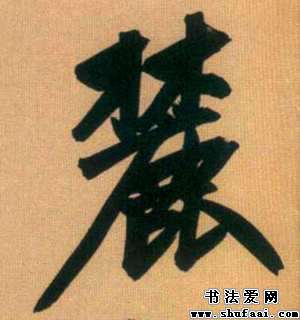 麓
书法爱网
www.shufaai.com